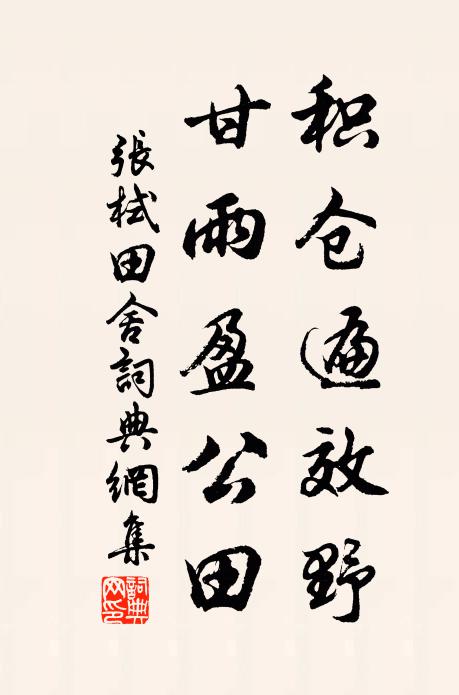 积仓遍效野
甘雨盈公田
張栻田舍詞典網集
詞典网印